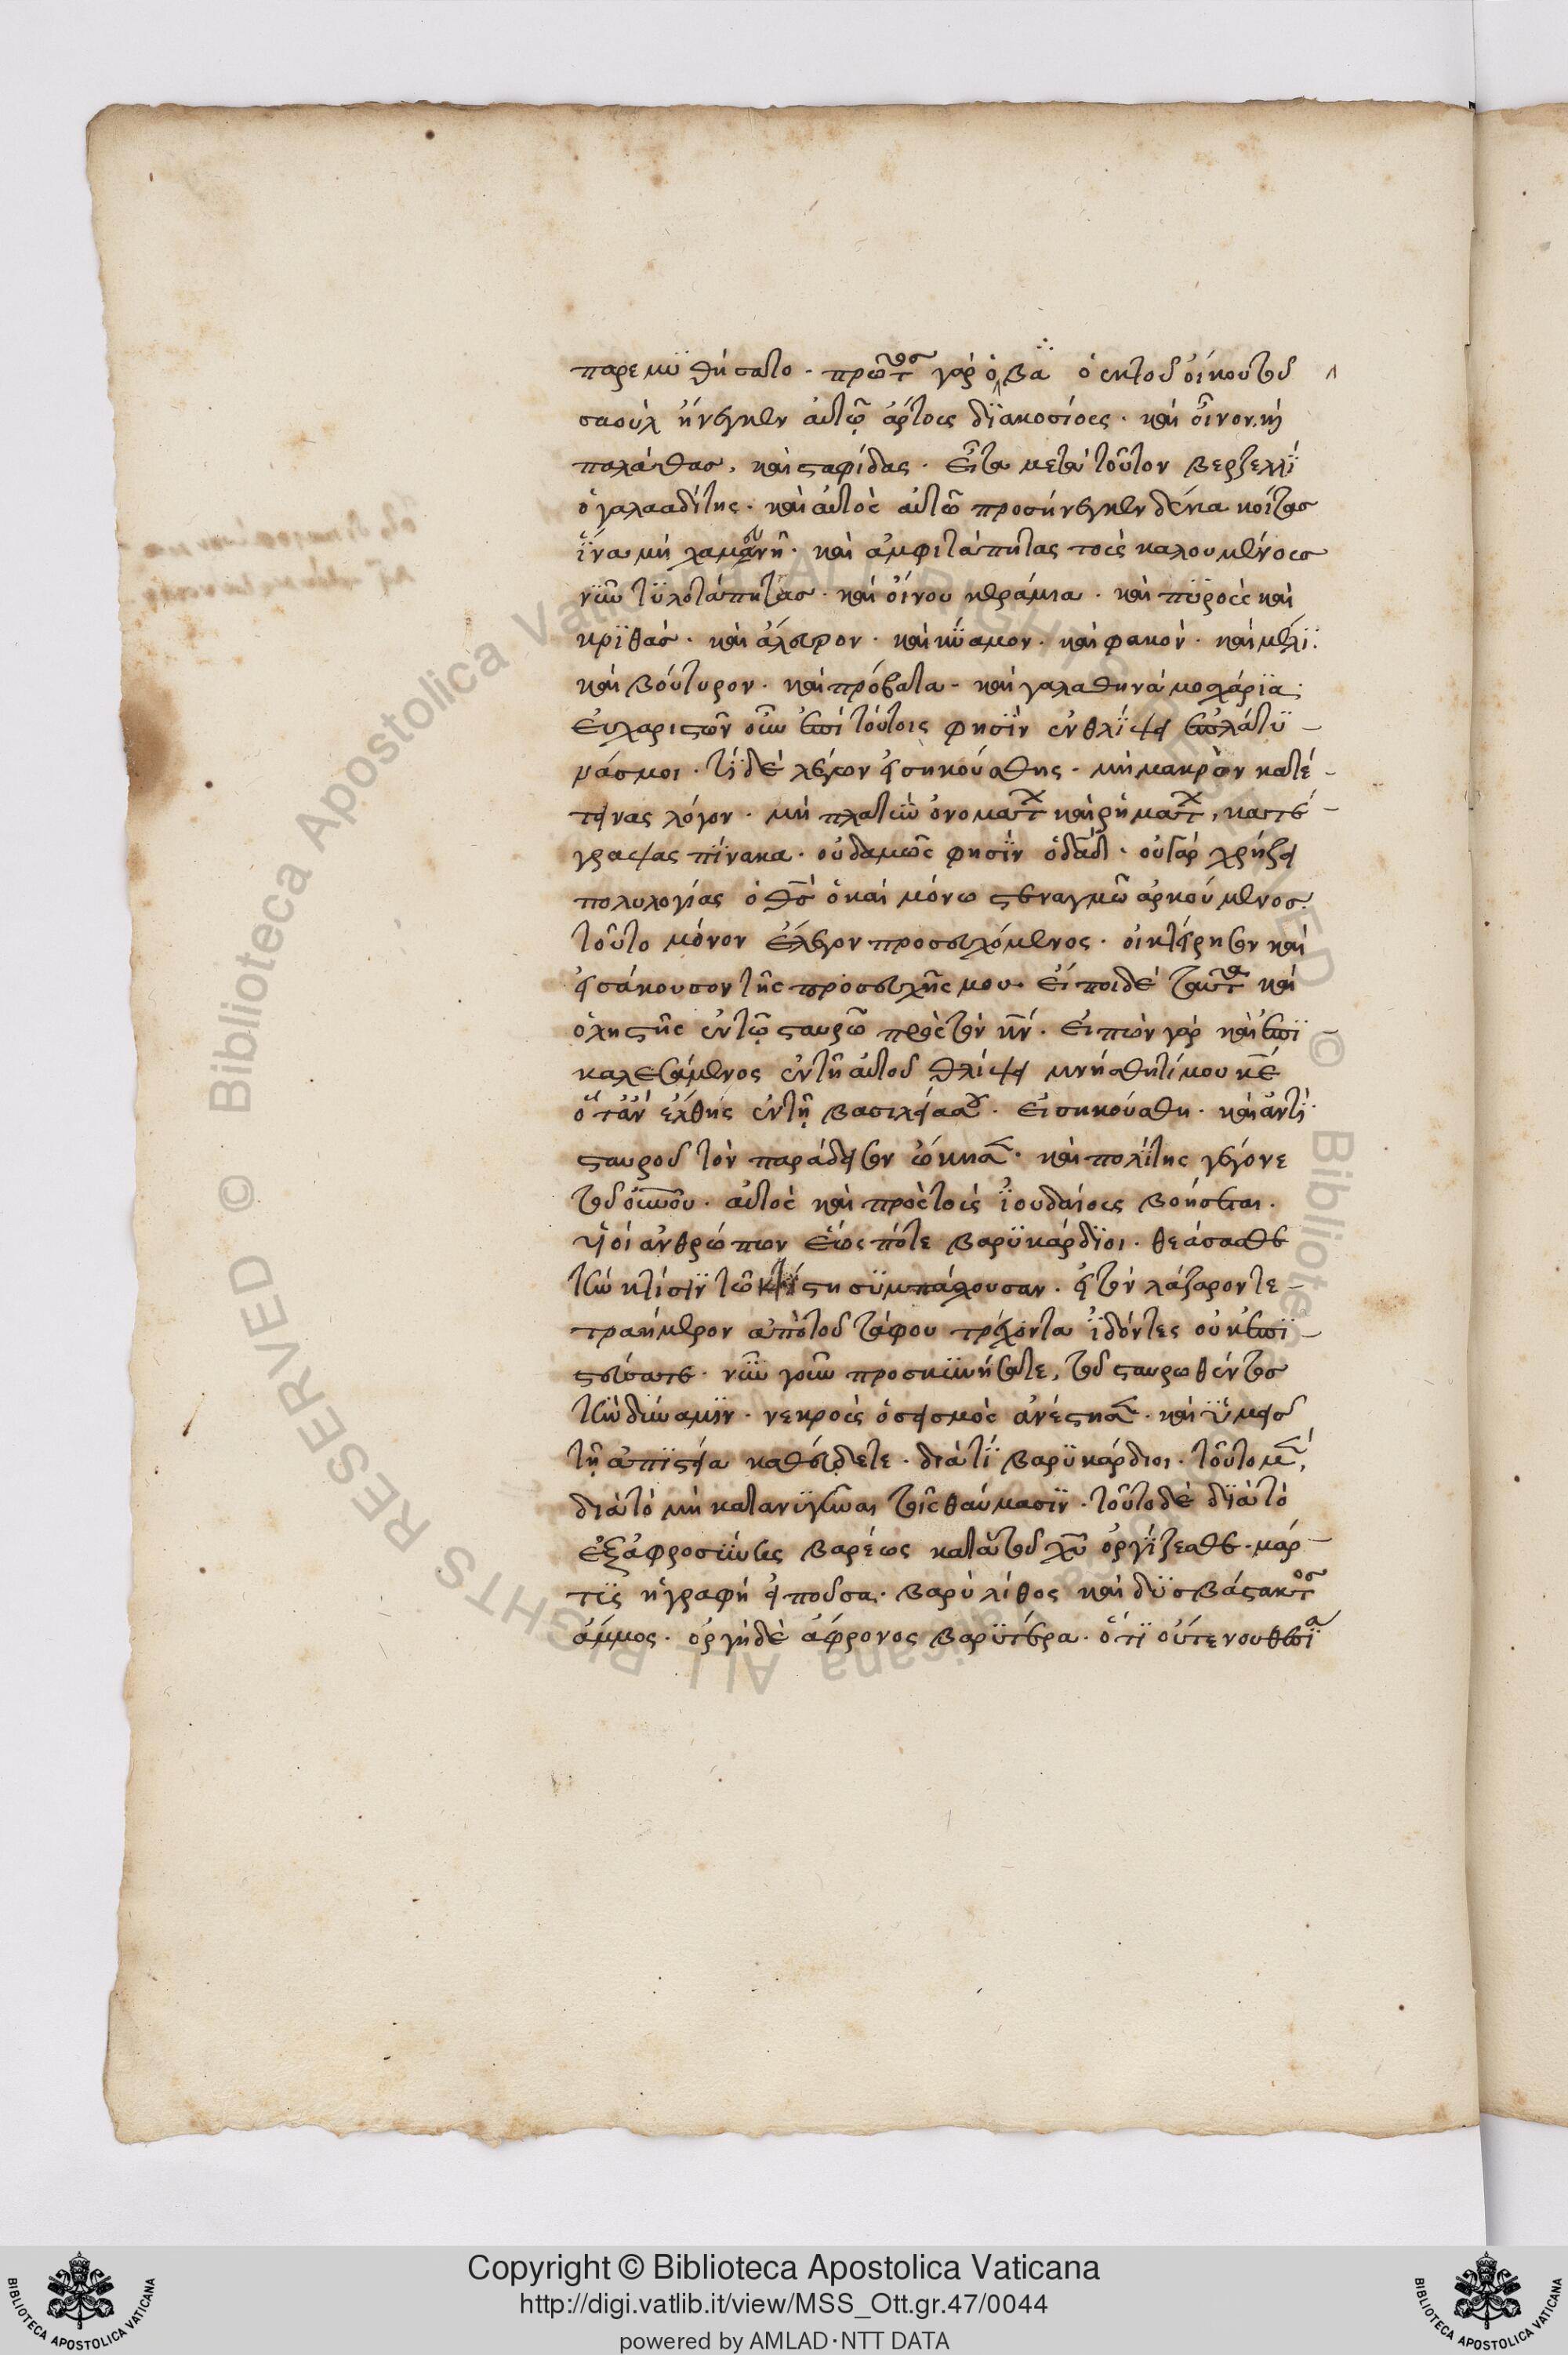 παρεμϋθήσατο · πρῶτος γὰρ ὁ βα ὁ ἐκ τοῦ οἴκου τοῦ
σαοὺλ ἤνεγκεν αὐτῷ ἄρτους δϊακοσίους · καὶ οἶνον, καὶ
παλάθας, καὶ σταφίδας · εἶτα μετὰ τοῦτον βερζελλῒ
ὁ γαλααδίτης · καὶ αὐτὸς αὐτῶ προσήνεγκεν δέκα κοίτας
ἵνα μὴ χαμευνῆ · καὶ ἀμφιτάπητας τοὺς καλουμένους
νῦν τϋλοτάπητας · καὶ οἴνου κεράμια · καὶ πϋροὺς καὶ
κρϊθάς · καὶ ἄλευρον · καὶ κϋαμον · καὶ φακὸν · καὶ μέλϊ ·
καὶ βούτυρον · καὶ πρόβατα · καὶ γαλαθηνὰ μοσχάρϊα ·
εὐχαριστῶν οὖν ἐπὶ τούτοις φησὶν ἐν θλίψει ἐπλάτϋ
νάς μοι · τί δὲ λέγων εἰσηκούσθης · μὴ μακρὸν κατέ
τεινας λόγον · μὴ πλατὺν ὀνομάτων καὶ ῥημάτων, κατέ
γραψας πίνακα · οὐδαμῶς φησὶν ὁ δαδ · οὐ γὰρ χρήζει
πολυλογίας ὁ θς ὁ καὶ μόνω στεναγμῶ ἀρκούμενος ·
τοῦτο μόνον ἔλεγον προσευχόμενος · οἰκτείρησον καὶ
εἰσάκουσον τῆς προσευχῆς μου · εἴποι δὲ ταῦτα καὶ
ὁ ληστὴς ἐν τῷ σταυρῶ πρὸς τὸν κν · εἰπὼν γὰρ καὶ ἐπϊ
καλεσάμενος ἐν τῇ αὐτοῦ θλίψει μνήσθητί μου κε
ὅταν ἔλθης ἐν τῇ βασιλείᾳ σου · εἰσηκούσθη · καὶ ἀντὶ
σταυροῦ τὸν παράδεισον ὤκησε · καὶ πολίτης γέγονε
τοῦ οὐνου · αὐτὸς καὶ πρὸς τοὺς ϊουδαίους βοήσεται ·
υἱοὶ ἀνθρώπων ἕως πότε βαρϋκάρδϊοι · θεάσασθε
τὴν κτίσϊν τῶ κτίστη σϋμπάσχουσαν · εἰ τὸν λάζαρον τε
τραήμερον ἀπὸ τοῦ τάφου τρέχοντα ϊδόντες οὐκ ἐπϊ
στεύσατε · νῦν γοῦν προσκϋνήσατε, τοῦ σταυρωθέντος
τὴν δύναμϊν · νεκροὺς ὁ σεισμὸς ἀνέστησε · καὶ ὑμεῖς
τῇ ἀπϊστεία καθεύδετε · διὰ τί βαρϋκάρδιοι · τοῦτο μὲν,
διὰ τὸ μὴ κατανϋγῆναι τοῖς θαύμασϊν · τοῦτο δὲ δϊὰ τὸ
ἐξ ἀφροσύνης βαρέως κατὰ τοῦ χυ ὀργίζεσθε · μάρ
τϋς ἡ γραφὴ εἰποῦσα · βαρὺ λίθος καὶ δϋσβάστακτος
ἄμμος · ὀργὴ δὲ ἄφρονος βαρϋτέρα · ὅτϊ οὔτε νουθεσία
Copyright © Biblioteca Apostolica Vaticana
http://digi.vatlib.it/view/MSS_Ott.gr.47/0044
powered by AMLAD·NTT DATA